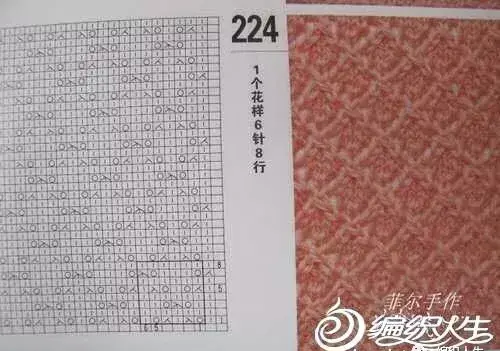 224
1个花样6针8行
8
5
6 5 1
菲尔手作
编织人生
编织人生